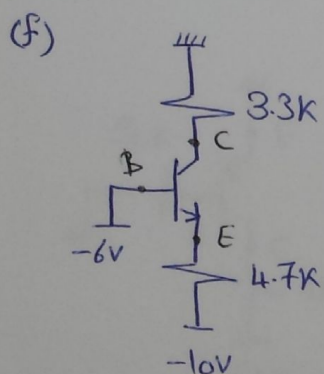 (f)
3.3K
C
B
-6V
E
4.7K
-10V